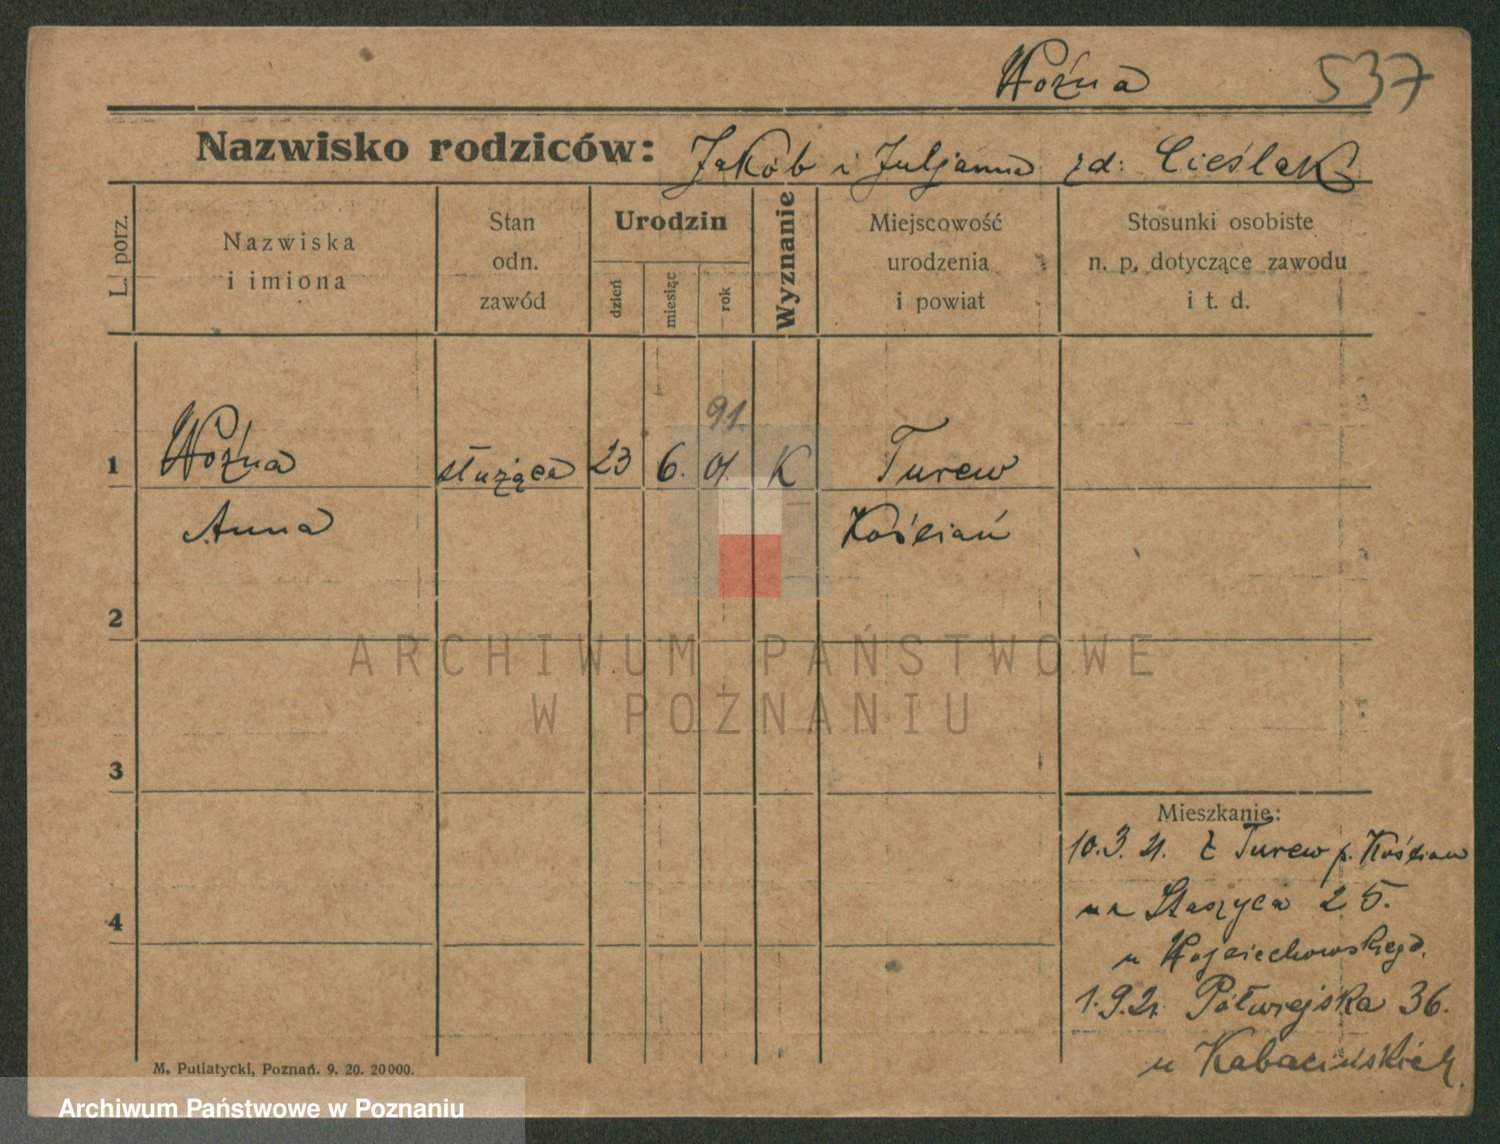 Woźna 537
Nazwisko rodziców: Jakób i Juljanna zd: Cieślak
L. porz.
Nazwiska
i imiona
Stan
odn.
zawód
Urodzin
dzień
miesiąc
rok
Wyznanie
Miejscowość
urodzenia
i powiat
Stosunki osobiste
n. p. dotyczące zawodu
i t. d.
91.
1 Woźna służąca 23 6. 01. K Turew
Anna Kościan
2
ARCHIWUM PAŃSTWOWE
W POZNANIU
3
Mieszkanie:
10.3.21. z Turew p. Kościan
na Staszyca 25.
4
u Wojciechowskiego.
1.9.21. Półwiejska 36.
u Kabacińskich.
M. Putiatycki, Poznań. 9. 20. 20000.
Archiwum Państwowe w Poznaniu